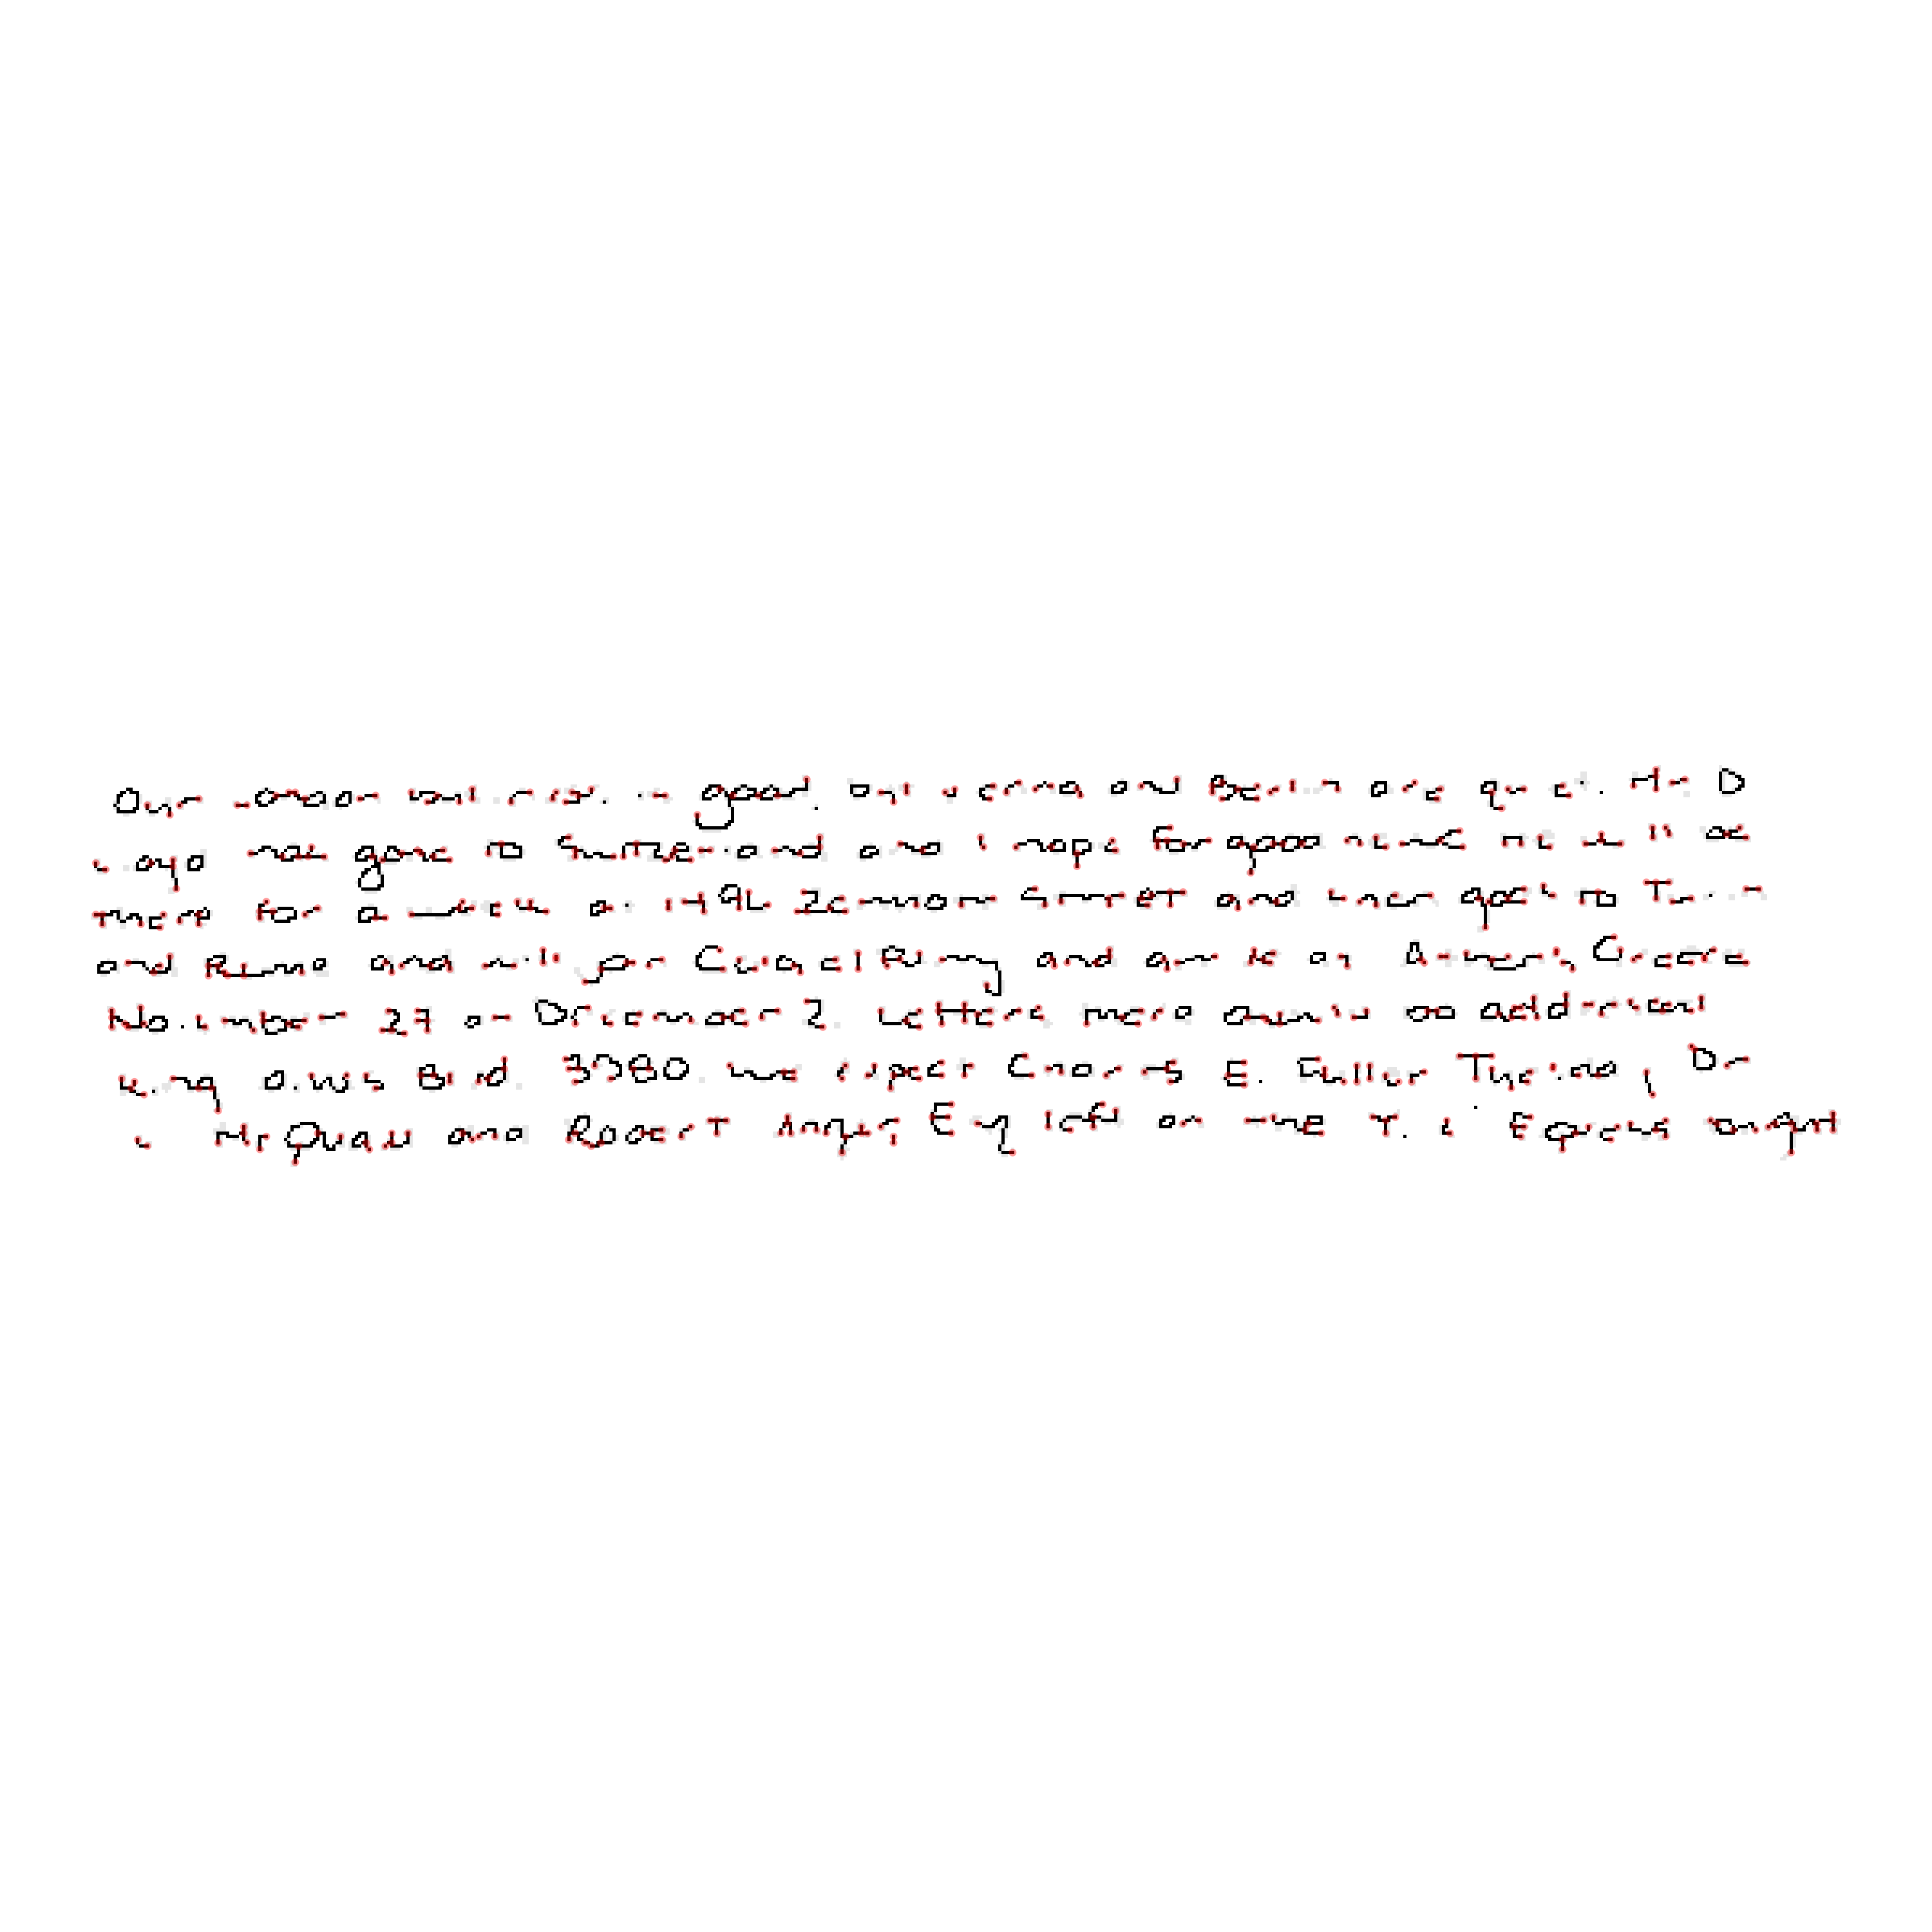 Our London business is good, but Vienna and Berlin are quiet. Mr. D.
Lloyd has gone to Switzerland and I hope for good news. He will be
there for a week at 1496 Zermott Street and then goes to Turin
and Rome and will join Colonel Parry and arrive at Athens, Greece,
November 27 or December 2. Letters there should be addressed
King James Blvd. 3580. We expect Charles E. Fuller Tuesday. Dr.
L. McQuaid and Robert Unger, Esq., left on the Y. X. Express tonight